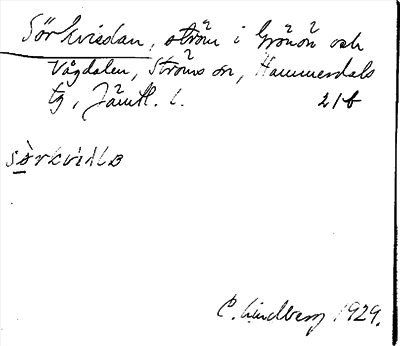 Sörkvislan, ström i Grönön och
Vågdalen, Ströms sn, Hammerdals
tg, Jämtl. l. 21f
C. Lindberg 1929.